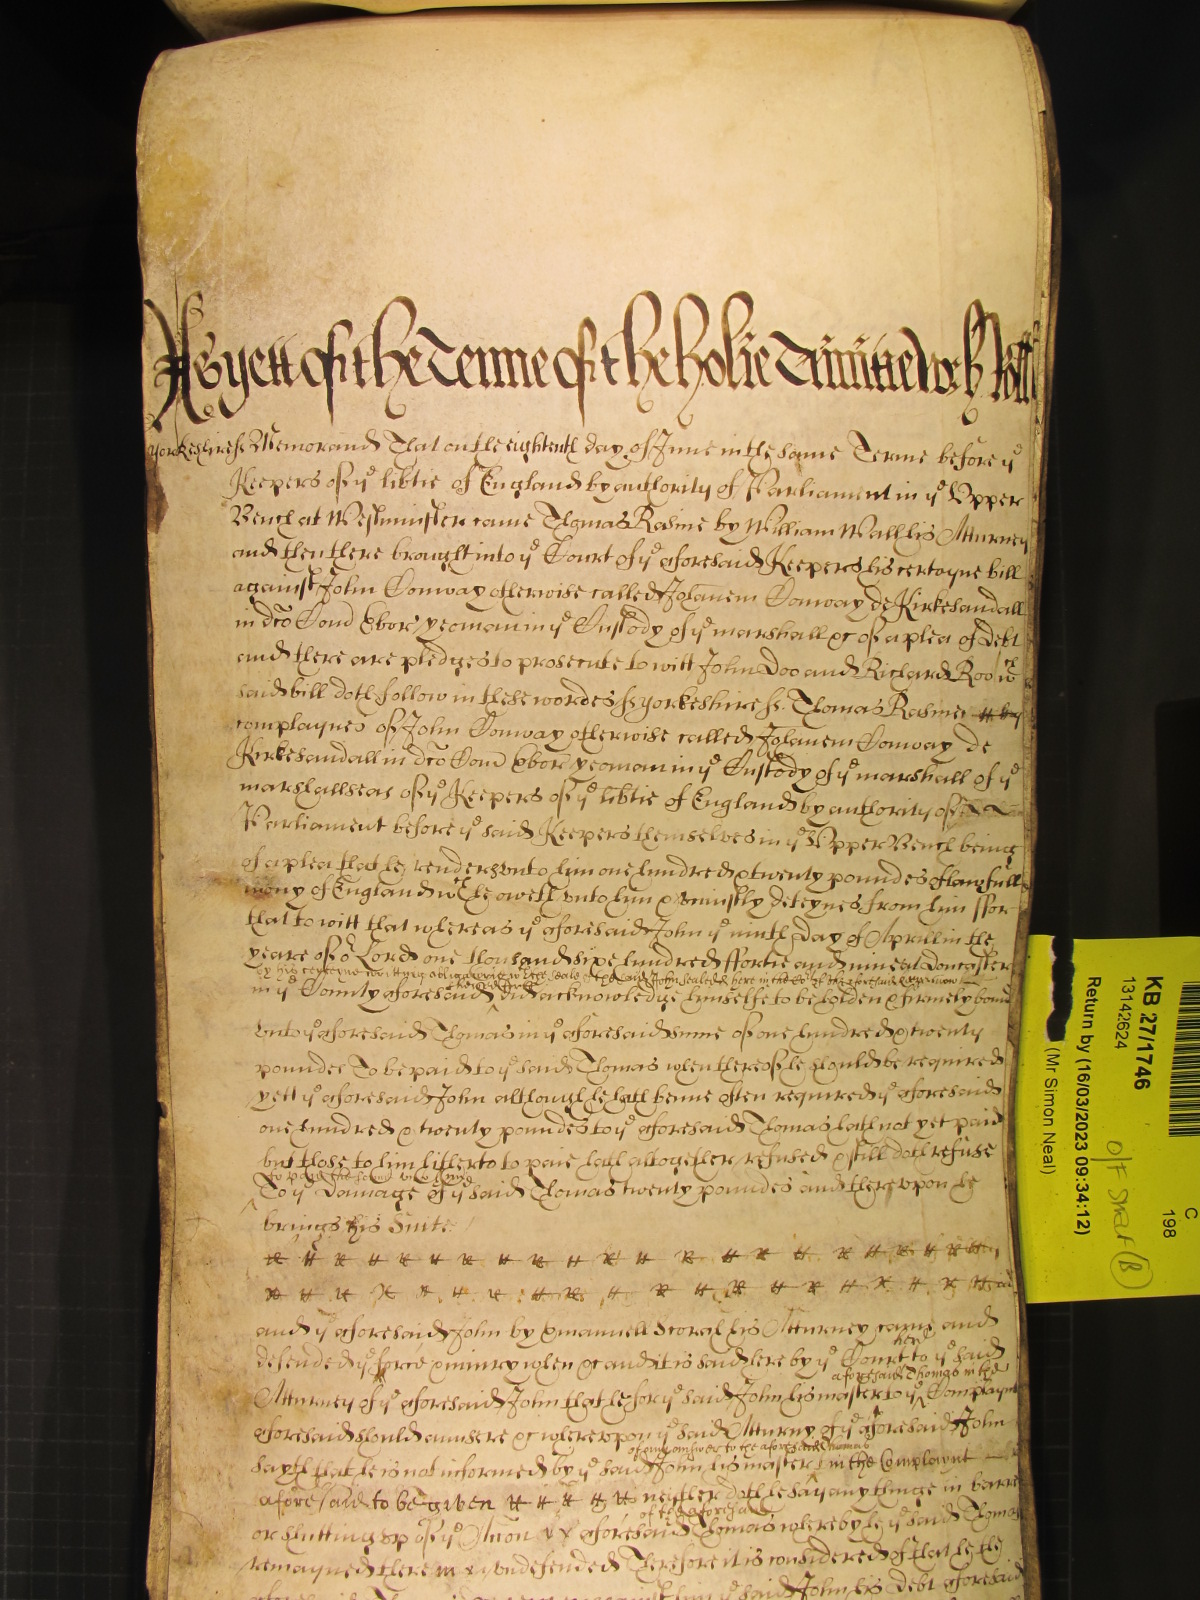 As yett of the Terme of the holie Trinitie
Yorkeshire ss Memorand That on the eightenth day of June in the same Terme before ye
Keepers of ye libtie of England by authority of Parliament in ye Upper
Bench at Westminster came Thomas Rasine by William Wall his Atturney
and then there brought into ye Court of ye aforesaid Keepers his certayne bill
against John Conway otherwise called Johanem Conway de Kirkesandall
in dco Com Ebor yeoman in ye Custody of ye marshall &c of a plea of Debt
and there are pledges to prosecute to witt John Doo and Richard Roo wch
said bill doth follow in these wordes ss Yorkeshire ss. Thomas Rasine
complaynes of John Conway otherwise called Johanem Conway de
Kirkesandall in dco Com Ebor yeoman in ye Custody of ye marshall of ye
marshallseas of ye Keepers of ye libtie of England by authority of
Parliament before ye said Keepers themselves in ye Upper Bench being
of a plea that he render unto him one hundred & twenty poundes of lawfull
mony of England wch he oweth unto him & uniustly deteynes from him ffor
that to witt that whereas ye aforesaid John ye ninth day of Aprill in the
yeare of or Lord one thousand sixe hundred ffortie and nine at Doncaster
by his certeyne writting obligatorie wth the seale of ye said John sealed & here in the Co of the aforesaid
in ye County aforesaid did acknowledge himselfe to be holden & firmely bound
unto ye aforesaid Thomas in ye aforesaid summe of one hundred & twenty
poundes To be paid to ye said Thomas when thereof he should be required
yett ye aforesaid John although he hath benne often required ye aforesaid
one hundred & twenty poundes to ye aforesaid Thomas hath not yet paid
but those to him hitherto to paie hath altogether refused & still doth refuse
to paie the same unto him
To ye Damage of ye said Thomas twenty poundes and thereupon he
brings his Suite
and ye aforesaid John by Emanuell Scorah his Atturney came and
defended ye force & iniury when &c and it is said here by ye Court to ye said
here
aforesaid Thomas in the
Atturney of ye aforesaid John that he for ye said John his master to ye Complaynt
aforesaid should answere &c whereupon ye said Atturny of ye aforesaid John
of any answer to the aforesaid Thomas
sayth that he is not informed by ye said John his master in the Complaynt
aforesaid to be given neither doth he say any thinge in barre
of the aforesaid
or shutting up of ye Accon aforesaid Thomas whereby he ye said Thomas
remayned there in undefended Therefore it is considered of that he the
aforesaid ye said John his Debt aforesaid
KB 27/1746
13142624
Return by (16/03/2023 09:34:12)
(Mr Simon Neal)
C
198
O/F Shelf (B)